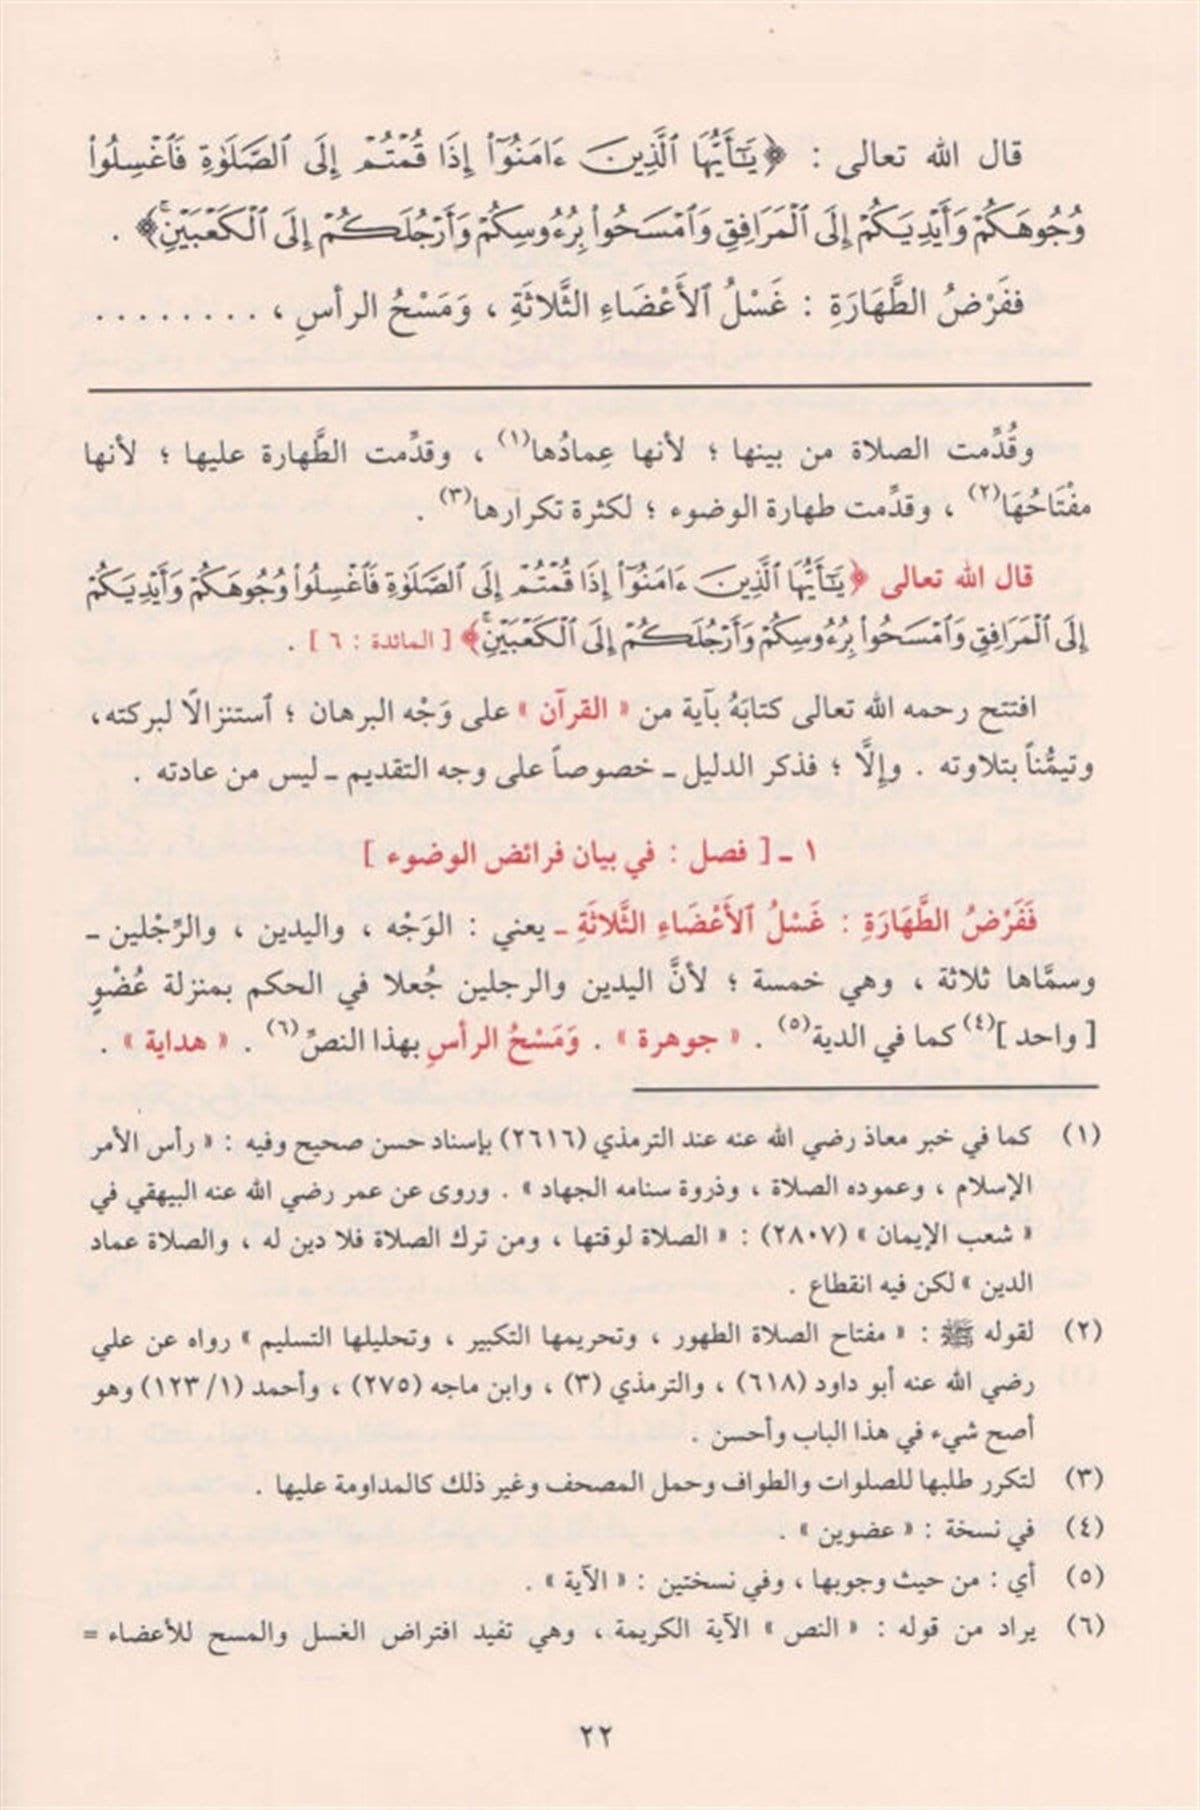 قال الله تعالى : ﴿ يَٰٓأَيُّهَا ٱلَّذِينَ ءَامَنُوٓا۟ إِذَا قُمْتُمْ إِلَى ٱلصَّلَوٰةِ فَٱغْسِلُوا۟
وُجُوهَكُمْ وَأَيْدِيَكُمْ إِلَى ٱلْمَرَافِقِ وَٱمْسَحُوا۟ بِرُءُوسِكُمْ وَأَرْجُلَكُمْ إِلَى ٱلْكَعْبَيْنِۚ﴾ .
ففَرْضُ الطَّهَارَةِ : غَسْلُ ٱلأَعْضَاءِ الثَّلاثَةِ ، وَمَسْحُ الرأسِ ، . . . . . . . .
وقُدِّمت الصلاة من بينها ؛ لأنها عِمادُها(١) ، وقدِّمت الطَّهارة عليها ؛ لأنها
مفْتَاحُهَا(٢) ، وقدِّمت طهارة الوضوء ؛ لكثرة تكرارها(٣) .
قال الله تعالى ﴿ يَٰٓأَيُّهَا ٱلَّذِينَ ءَامَنُوٓا۟ إِذَا قُمْتُمْ إِلَى ٱلصَّلَوٰةِ فَٱغْسِلُوا۟ وُجُوهَكُمْ وَأَيْدِيَكُمْ
إِلَى ٱلْمَرَافِقِ وَٱمْسَحُوا۟ بِرُءُوسِكُمْ وَأَرْجُلَكُمْ إِلَى ٱلْكَعْبَيْنِۚ﴾ [ المائدة : ٦ ] .
افتتح رحمه الله تعالى كتابَهُ بآية من « القرآن » على وَجْه البرهان ؛ ٱستنزالًا لبركته،
وتيمُّناً بتلاوته . وإلَّا ؛ فذكر الدليل ـ خصوصاً على وجه التقديم ـ ليس من عادته .
١ ـ [ فصل : في بيان فرائض الوضوء ]
فَفَرْضُ الطَّهَارَةِ : غَسْلُ ٱلأَعْضَاءِ الثَّلاثَةِ ـ يعني : الوَجْه ، واليدين ، والرِّجْلين ـ
وسمَّاها ثلاثة ، وهي خمسة ؛ لأنَّ اليدين والرجلين جُعلا في الحكم بمنزلة عُضْوٍ
[ واحد ](٤) كما في الدية(٥) . « جوهرة » . وَمَسْحُ الرأسِ بهذا النصِّ(٦) . « هداية » .
(١) كما في خبر معاذ رضي الله عنه عند الترمذي (٢٦١٦) بإسناد حسن صحيح وفيه : « رأس الأمر
الإسلام ، وعموده الصلاة ، وذروة سنامه الجهاد » . وروى عن عمر رضي الله عنه البيهقي في
« شعب الإيمان » (٢٨٠٧) : « الصلاة لوقتها ، ومن ترك الصلاة فلا دين له ، والصلاة عماد
الدين » لكن فيه انقطاع .
(٢) لقوله ﷺ : « مفتاح الصلاة الطهور ، وتحريمها التكبير ، وتحليلها التسليم » رواه عن علي
رضي الله عنه أبو داود (٦١٨) ، والترمذي (٣) ، وابن ماجه (٢٧٥) ، وأحمد (١/١٢٣) وهو
أصح شيء في هذا الباب وأحسن .
(٣) لتكرر طلبها للصلوات والطواف وحمل المصحف وغير ذلك كالمداومة عليها .
(٤) في نسخة : « عضوين » .
(٥) أي : من حيث وجوبها ، وفي نسختين : « الآية » .
(٦) يراد من قوله : « النص » الآية الكريمة ، وهي تفيد افتراض الغسل والمسح للأعضاء =
٢٢